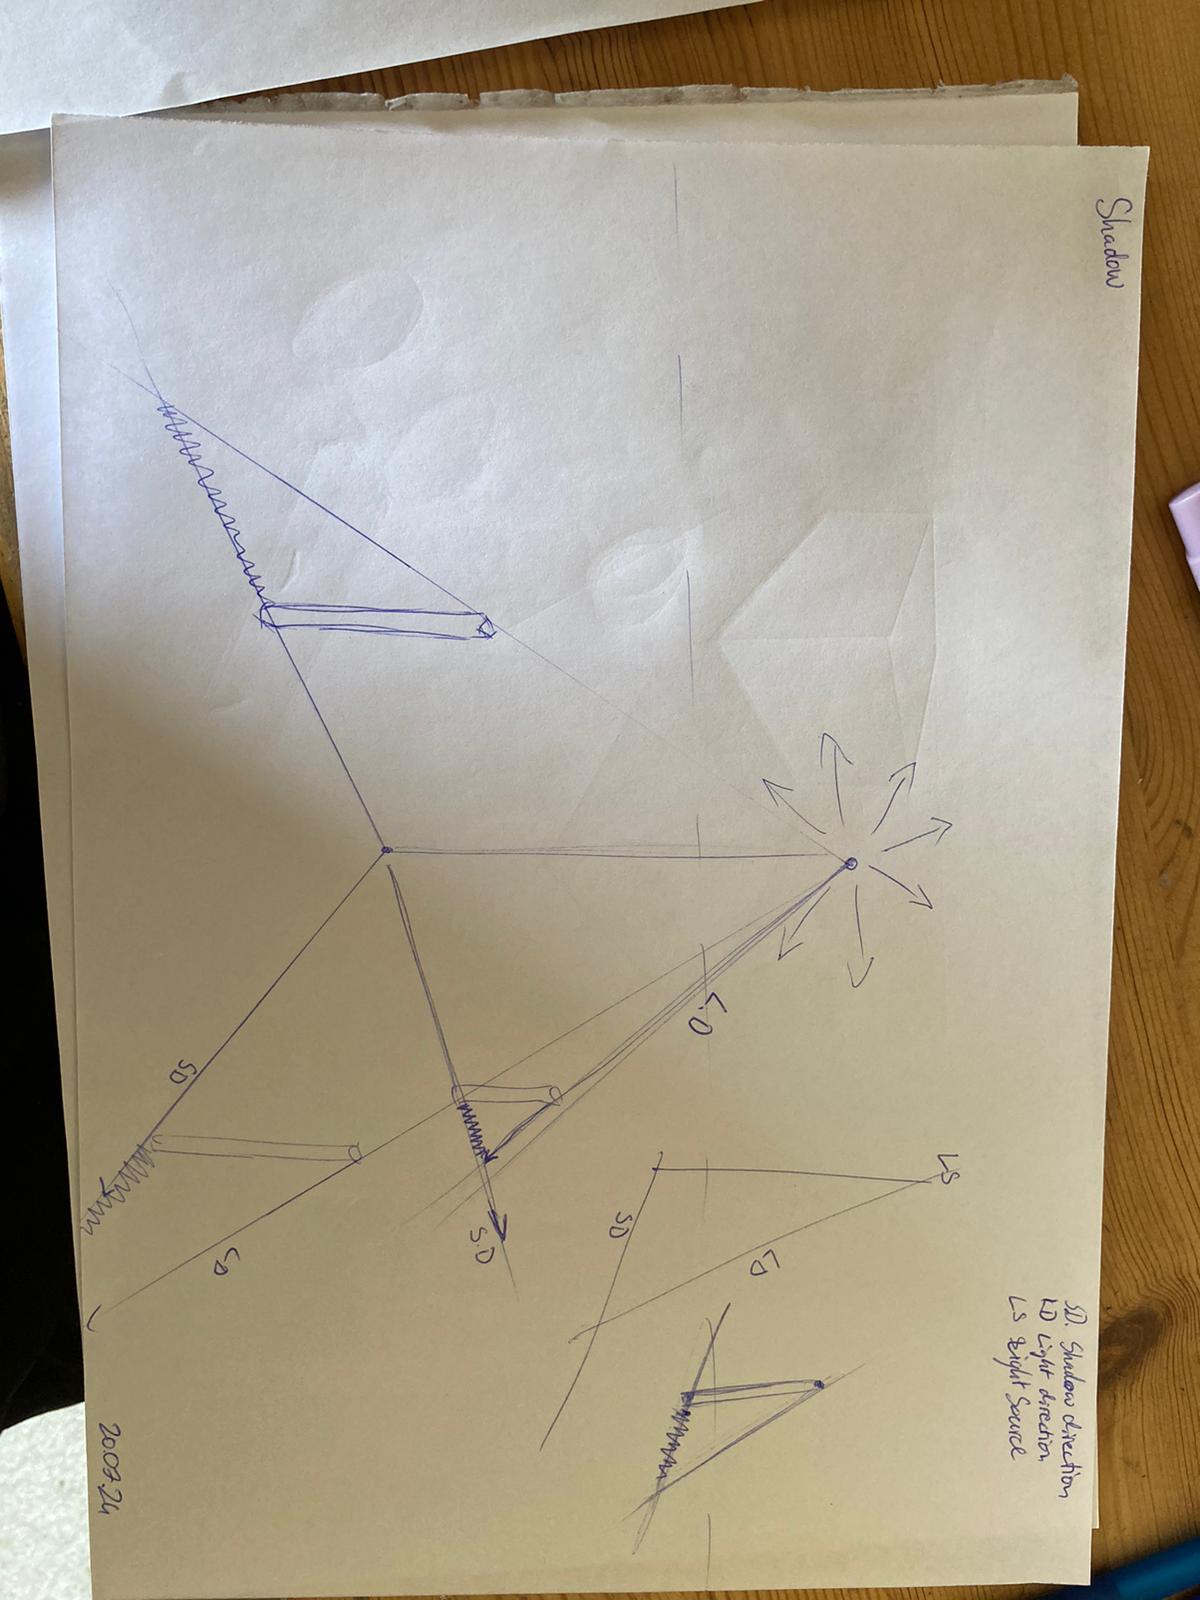 Shadow
SD. Shadow direction
LD Light direction
LS Light Source
LS
L.D
LD
SD
S.D
SD
LD
20.07.24